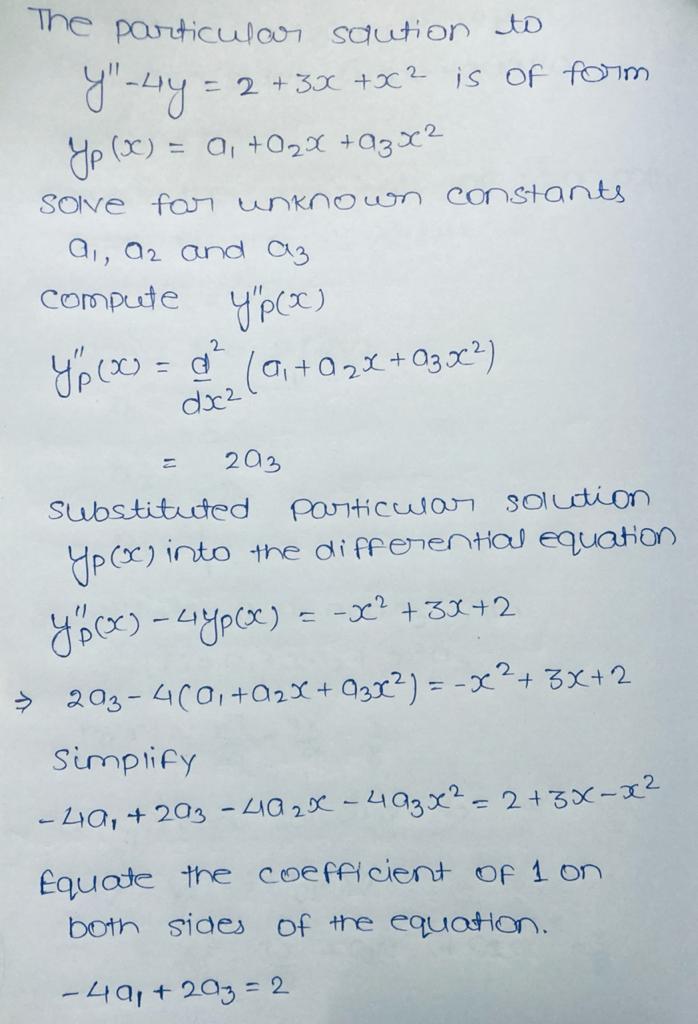 The particular soution to
y" - 4y = 2 + 3x + x² is of form
yp(x) = a₁ + a₂x + a₃x²
solve for unknown constants
a₁, a₂ and a₃
compute y"p(x)
y"p(x) = d²/dx² (a₁ + a₂x + a₃x²)
= 2a₃
substituted particular solution
yp(x) into the differential equation
y"p(x) - 4yp(x) = -x² + 3x + 2
⇒ 2a₃ - 4(a₁ + a₂x + a₃x²) = -x² + 3x + 2
Simplify
-4a₁ + 2a₃ - 4a₂x - 4a₃x² = 2 + 3x - x²
Equate the coefficient of 1 on
both sides of the equation.
-4a₁ + 2a₃ = 2